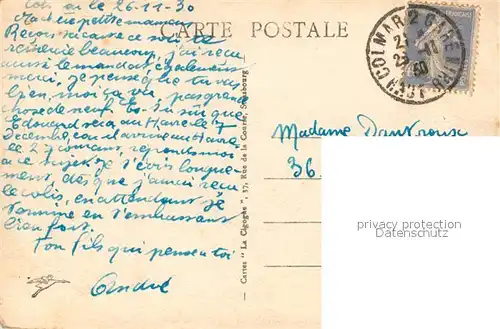 le 26-11-30
CARTE POSTALE
petite maman
Reçois ce soir te
remercie beaucoup, j'ai reçu
aussi le mandat également
merci, je pense que tu vas
bien, moi ça va, pas grand
chose de neuf. Es-tu sûr que
Edouard sera au Havre le 7
Décembre, car il arrive au Havre
le 27 courant, réponds moi
à ce sujet. Je t'écris longue-
ment, dès que j'aurai reçu
le colis, en attendant je
termine en t'embrassant
bien fort.
Ton fils qui pense à toi
André
Cartes "La Cigogne", 37, Rue de la Course, Strasbourg
COLMAR 2 GARE
Madame
36
privacy protection
Datenschutz